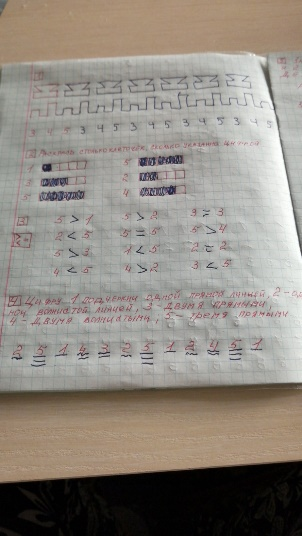 1
3 4 5 3 4 5 3 4 5 3 4 5 3 4 5
2 столько клеток, сколько указано цифрой
1 5
3 2
5 4
3 5 > 1 5 > 2 3 = 3
2 < 5 5 = 5 5 > 4
5 > 3 1 < 5 2 = 2
4 < 5 4 > 2 3 < 5
4 Цифру 1 подчеркни одной прямой линией, 2 - од-
ной волнистой линией, 3 двумя прямыми
4 - двумя волнистыми, 5 - тремя прямыми
5 1 5 1 3 4 5 1